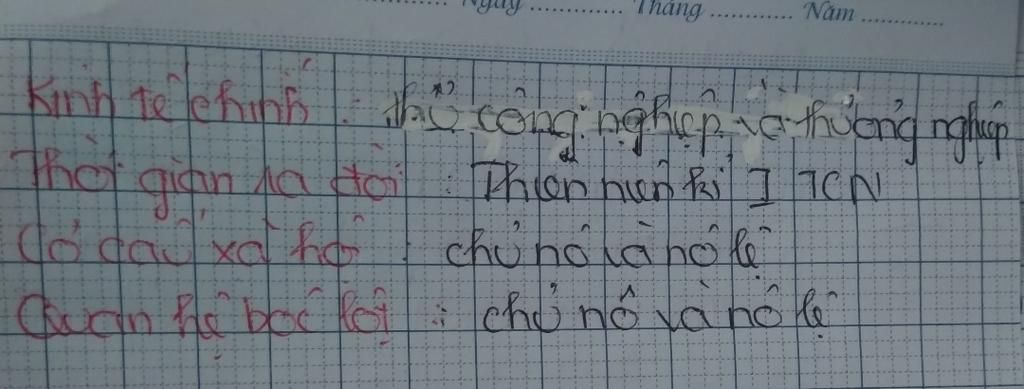 Ngày ............ Tháng ............ Năm ............
Kinh tế chính : thủ công nghiệp và thương nghiệp
Thời gian ra đời : Thiên niên kỉ I TCN
Cơ cấu xã hội : chủ nô và nô lệ
Quan hệ bóc lột : chủ nô và nô lệ